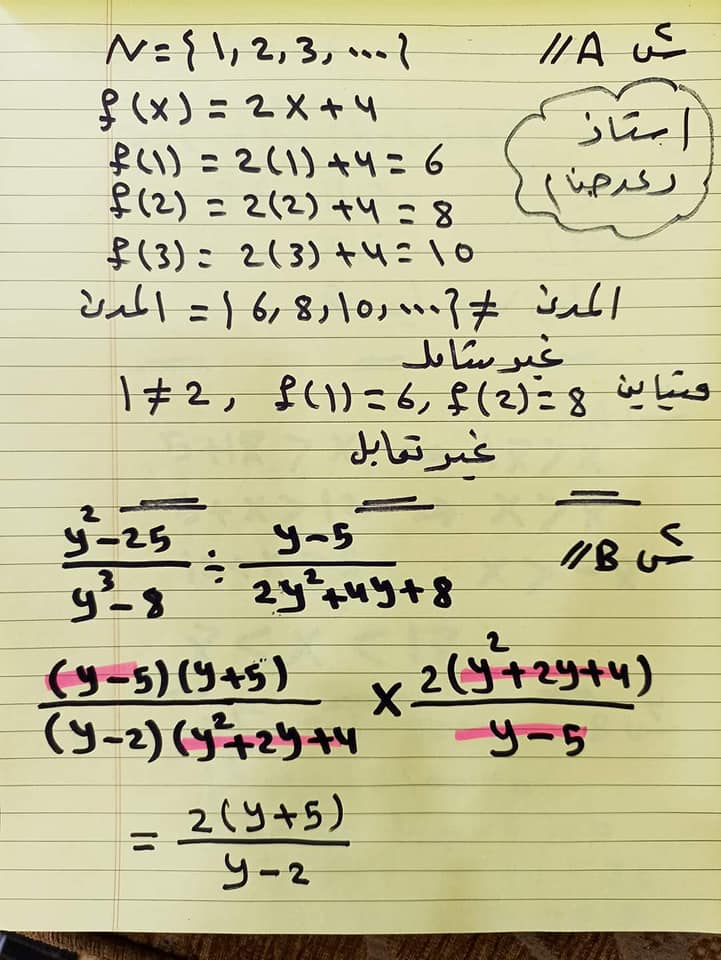 س A //
N = { 1, 2, 3, ... }
استاذ
f(x) = 2x + 4
f(1) = 2(1) + 4 = 6
f(2) = 2(2) + 4 = 8
f(3) = 2(3) + 4 = 10
المدى = { 6, 8, 10, ... } ≠ المدى
غير شامل
متباين 1 ≠ 2, f(1) = 6, f(2) = 8
غير تقابل
س B //
(y² - 25)/(y³ - 8) ÷ (y - 5)/(2y² + 4y + 8)
(y - 5)(y + 5)/(y - 2)(y² + 2y + 4 × 2(y² + 2y + 4)/(y - 5)
= 2(y + 5)/(y - 2)